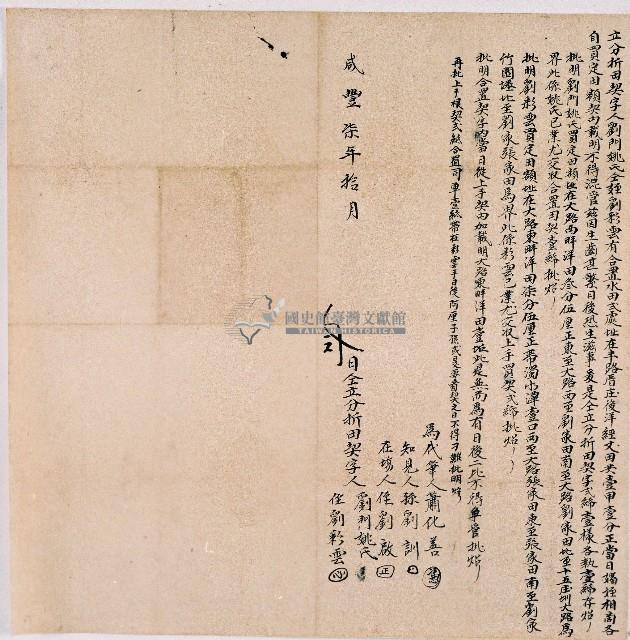 立分折田契字人劉門姚氏仝姪劉彩雲有合置水田弍處址在半路厝庄後洋經丈田共壹甲壹分正當日嬸姪相商各
自買定田額契內載明不得混管茲因生齒甚繁日後恐生滋事爰是仝立分折田契字弍紙壹樣各執壹紙存炤
批明劉門姚氏買定田額址在大路西畔洋田叁分伍厘正東至大路西至劉家田南至大路劉家田北至十五庄圳大路為
界此係姚氏己業尤交收合置司契壹紙批炤
批明劉彩雲買定田額址在大路東畔洋田柒分伍厘正帶濁水潭壹口西至大路張家田東至張家田南至劉家
竹圍埕北至劉家張家田為界此係彩雲己業尤交收上手買契弍紙批炤
批明合置契字的當日從上手契內加載明大路東畔洋田壹坵此是無而為有日後二比不得爭管批炤
再批上手模契弍紙合置司單壹紙帶在彩雲手日後阿厘子孫或是要看契之日不得刁難批明炤
為代筆人蕭化善
知見人孫劉訓
在場人侄劉啟 正
咸豐柒年拾月 日仝立分折田契字人劉門姚氏
侄劉彩雲
國史館臺灣文獻館
TAIWAN HISTORICA